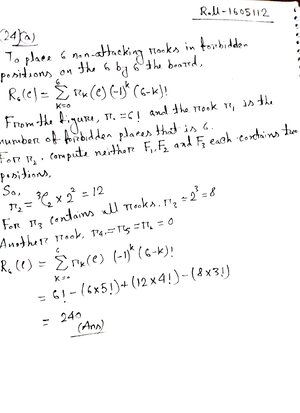 Roll-1605112
(24)(a)
To place 6 non-attacking rooks in forbidden
positions on the 6 by 6 the board,
R₆(c) = ∑ₖ₌₀⁶ rₖ(c) (-1)ᵏ (6-k)!
From the figure, r₀ = 6! and the rook r₁ is the
number of forbidden places that is 6.
For r₂ compute neither F₁, F₂ and F₃ each contains two
positions,
So,
r₂ = ³C₂ × 2² = 12
For r₃ contains all rooks, r₃ = 2³ = 8
Another rook, r₄ = r₅ = r₆ = 0
R₆(c) = ∑ₖ₌₀⁶ rₖ(c) (-1)ᵏ (6-k)!
= 6! - (6×5!) + (12×4!) - (8×3!)
= 240
(Ans)